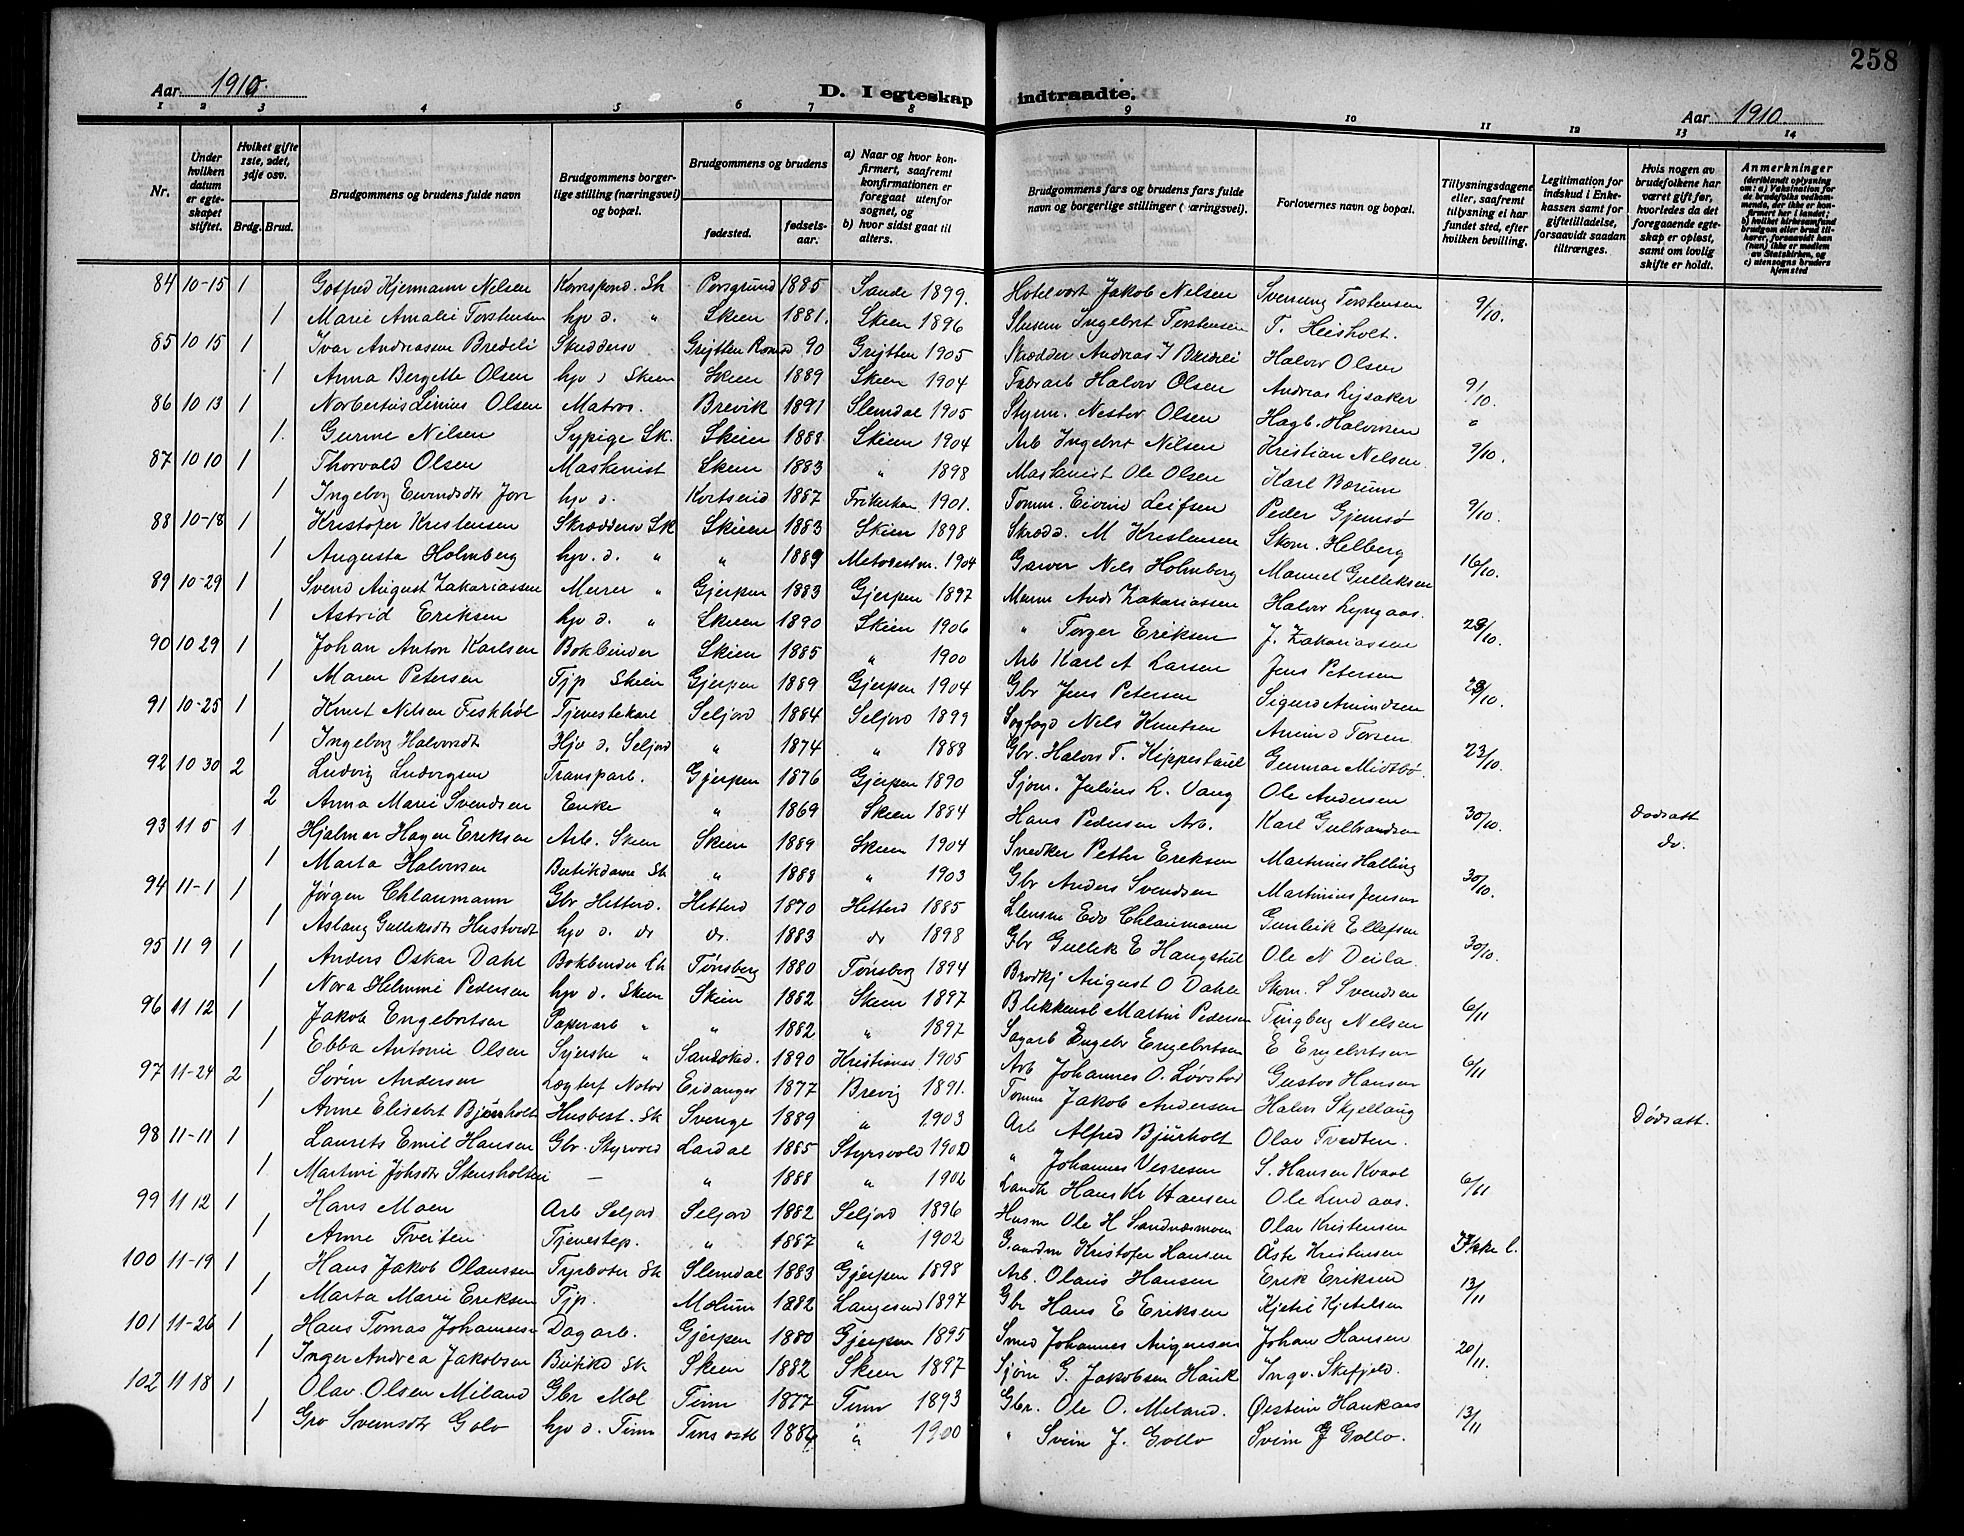 258
Aar 1910.
D. I egteskap indtraadte.
Aar 1910.
1 2 3 4 5 6 7 8 9 10 11 12 13 14
Nr.
Under hvilken datum er egteskapet stiftet.
Hvilket gifte 1ste, 2det, 3dje osv.
Brdg. Brud.
Brudgommens og brudens fulde navn
Brudgommens borgerlige stilling (næringsvei) og bopæl.
Brudgommens og brudens
fødested.
fødselsaar.
a) Naar og hvor konfirmert, saafremt konfirmationen er foregaat utenfor sognet, og
b) hvor sidst gaat til alters.
Brudgommens fars og brudens fars fulde navn og borgerlige stillinger ( æringsvei).
Forlovernes navn og bopæl.
Tillysningsdagene eller, saafremt tillysning ei har fundet sted, efter hvilken bevilling.
Legitimation for indskud i Enkekassen samt for giftetilladelse, forsaavidt saadan tiltrænges.
Hvis nogen av brudefolkene har været gift før, hvorledes da det foregaaende egteskap er opløst, samt om lovlig skifte er holdt.
Anmerkninger (deriblandt oplysning om: a) Vaksination for de brudefolks vedkommende, der ikke er konfirmert her i landet; b) hvilket kirkesamfund brudgom eller brud tilhører, forsaavidt han (hun) ikke er medlem av Statskirken, og c) utensogns bruders hjemsted
84 10-15 1 Gotfred Kjermann Nelsen Korrspond. Sk Porsgrund 1885 Sande 1899. Hotelvert Jakob Nelsen Svenung Torstensen 9/10.
1 Marie Amalie Torstensen hjv d. " Skien 1881. Skien 1896 Ingebret Torstensen T. Heisholt.
85 10 15 1 Ivar Andreasen Bredeli Skræddersv Romsd 90 1905 Skrædder Andreas I Bredeli Halvor Olsen 9/10.
1 Anna Bergitte Olsen hjv d Skien Skien 1889 Skien 1904 Halvor Olsen Andreas Lysaker
86 10 13 1 Norbertus Linius Olsen Matros. Brevik 1891 Slemdal 1905 Styrm. Nester Olsen Hagb. Halvorsen "
1. Gurine Nilsen Sypige Sk. Skien 1888 Skien 1904 Arb Ingebret Nilsen Kristian Nelsen 9/10.
87 10 10 1 Thorvald Olsen Maskinist Skien 1883 " 1898 Maskinist Ole Olsen Karl Bærum
1 Ingeborg hjv d. 1887 Frikirken 1901. Tomm. Eivind Leifsen Peder Gjemsø 9/10.
88 10-18 1 Kristofer Kristensen Skræddersv Sk Skien 1883 Skien 1898 Skrædd. M Kristensen Skom. Helberg
1 Augusta Holmberg hjv. d. " " 1889 Metodistm. 1904 Garver Nels Holmberg Manuel Gulliksen 16/10.
89 10-29 1 Svend August Zakariassen Murer " Gjerpen 1883 Gjerpen 1897 Murer Andr Zakariassen Halvor Lyngaas.
1 Astrid Eriksen hjv d. " Skien 1890 Skien 1906 " Torger Eriksen J. Zakariassen 23/10.
90 10 29 1 Johan Anton Karlsen Bokbinder Skien 1885 " 1900 Arb Karl A Larsen Jens Petersen
1 Maren Petersen Tjp Skien Gjerpen 1889 Gjerpen 1904 Gbr Jens Petersen Sigurd Amundsen 23/10.
91 10-25 1 Knut Nilsen Fiskhøl Tjenestekarl Seljord 1884 Seljord 1899 Nels Knutsen Amund Torsen
1 Ingeborg Halvorsdt Hjv d. Seljord " 1874 " 1888 Gbr. Halvor T. Kippestøul Gunnar Midtbø. 23/10.
92 10 30 2 Ludvig Ludvigsen Transparb. Gjerpen 1876 Gjerpen 1890 Sjøm. Julius L. Vang Ole Andersen
2 Anna Marie Svendsen Enke " 1869 Skien 1884 Hans Pedersen Arb. Karl Gulbrandsen 30/10. Dødsatt
93 11 5 1 Hjalmar Hagen Eriksen Arb. Skien Skien 1889 Skien 1904 Snedker Petter Eriksen Martinius Halling do.
1 Marta Halvorsen Butikdame Sk " 1888 " 1903 Gbr Anders Svendsen Martinius Jensen 30/10.
94 11-1 1 Jørgen Chlaumann Gbr Hitterd. Hitterd 1870 Hitterd 1885 Lensm Edv Chlaumann Gunleik Ellefsen
1 Aslaug Gulleksdtr hjv d. do do. 1883 do 1898 Gbr Gullek E Haugstul Ole N Deila 30/10.
95 11 9 1 Anders Oskar Dahl Bokbinder Ch Tønsberg 1880 Tønsberg 1894 August O Dahl Skom. S Svendsen
1 Nora Helmine Pedersen hjv d. Skien Skien 1882 Skien 1897 Blikkensl Martin Pedersen Nelsen 6/11
96 11 12 1 Jakob Engebretsen Papirarb " " 1882 " 1897 Sagarb Engebr Engebretsen E Engebretsen
1 Ebba Antonie Olsen Syerske " 1890 Kristiania 1905 Arb Johannes O. Løvstad Gustav Hansen 6/11
97 11-24 2 Sørin Andersen Eidanger 1877 Brevig 1891. Tomm Jakob Andersen Halvor Skjellaug
1 Anne Elisebet Bjurholt Husbest. Sk Sverige 1889 " 1903 Arb Alfred Bjurholt Olav Tvedten. Dødsatt.
98 11-11 1 Laurets Emil Hansen Gbr. Styrvold Lardal 1885 Styrsvold 1900 " Johannes Vessesen S. Hansen Kvaal
1 Martine Johsdtr Stensholten — " 1888 " 1902 Landh Hans Kr Hansen Ole Lindaas. 6/11
99 11 12 1 Hans Moen Arb Seljord Seljord 1882 Seljord 1896 Husm Ole H Sandnæsmoen Olav Kristensen
1 Anne Tveiten Tjenestep. " 1887 " 1902 Gaardm Kristofer Hansen Åste Kristensen Ikke l.
100 11-19 1 Hans Jakob Olaussen Fyrbøter Sk Slemdal 1883 Gjerpen 1898 Arb. Olaus Hansen Erik Eriksen
1 Marta Marie Eriksen Tjp. Molum 1882 Langesund 1897 Gbr Hans E Eriksen Kjetil Kjetelsen 13/11
101 11-26 1 Hans Tomas Johannesen Dagarb. Gjerpen 1880 Gjerpen 1895 Smed Johannes Johan Hansen
1 Inger Andrea Jakobsen Butikd Sk Skien 1882 Skien 1897 Sjøm G. Jakobsen Hauk Ingv. Skifjeld. 20/11.
102 11 18 1 Olav Olsen Miland Gbr Mæl Tinn 1877 Tinn 1893 Gbr. Ole O. Miland. Øistein Haukaas
1 Gro Sveinsdtr Golv hjv d. Tinn Tins østk 1884 " 1900 " Svein J. Gollv Svein J Gollv. 13/11